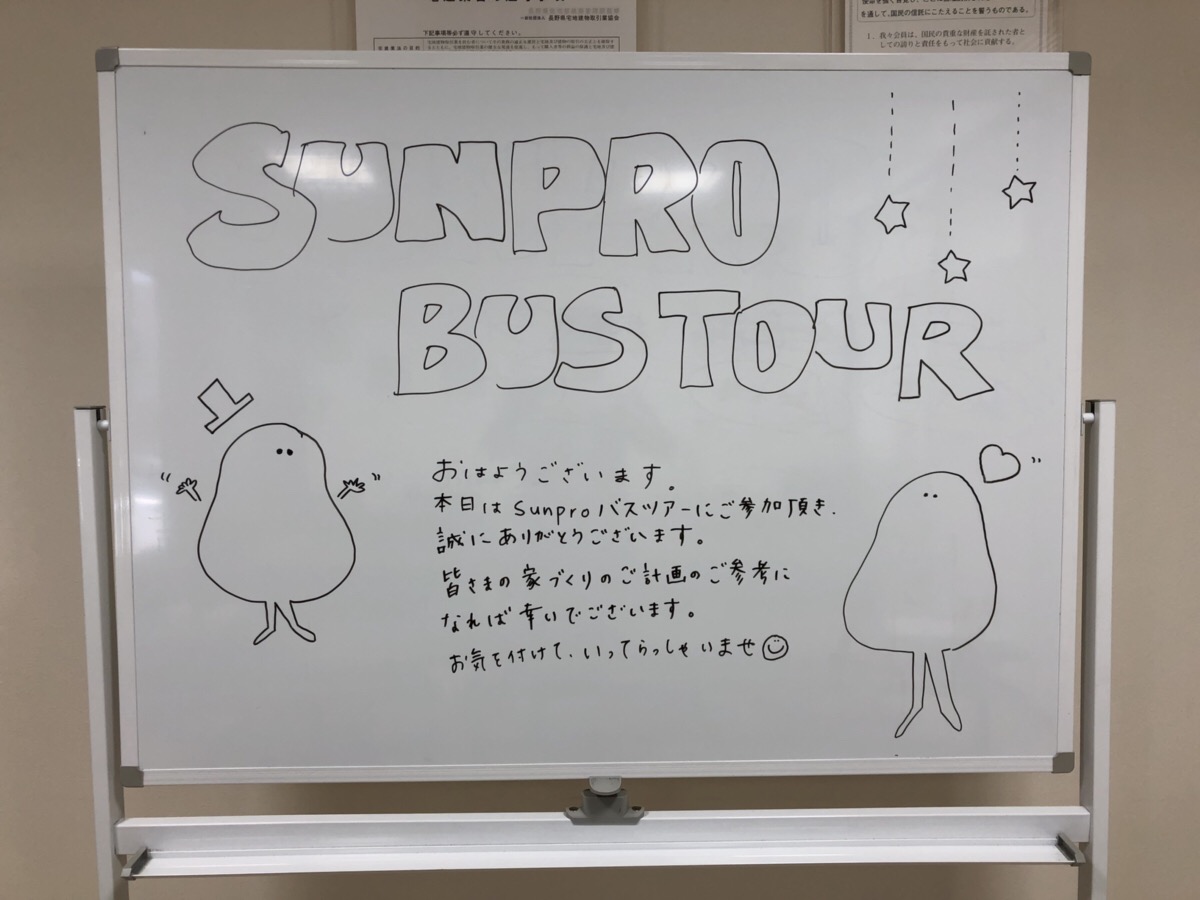 一般社団法人 長野県宅地建物取引業協会
下記事項等必ず遵守してください。
を通して、国民の信託にこたえることを誓うものである。
1. 我々会員は、国民の貴重な財産を託された者と
しての誇りと責任をもって社会に貢献する。
SUNPRO
BUS TOUR
おはようございます。
本日は sunpro バスツアーにご参加頂き、
誠にありがとうございます。
皆さまの家づくりのご計画のご参考に
なれば幸いでございます。
お気を付けて、いってらっしゃいませ